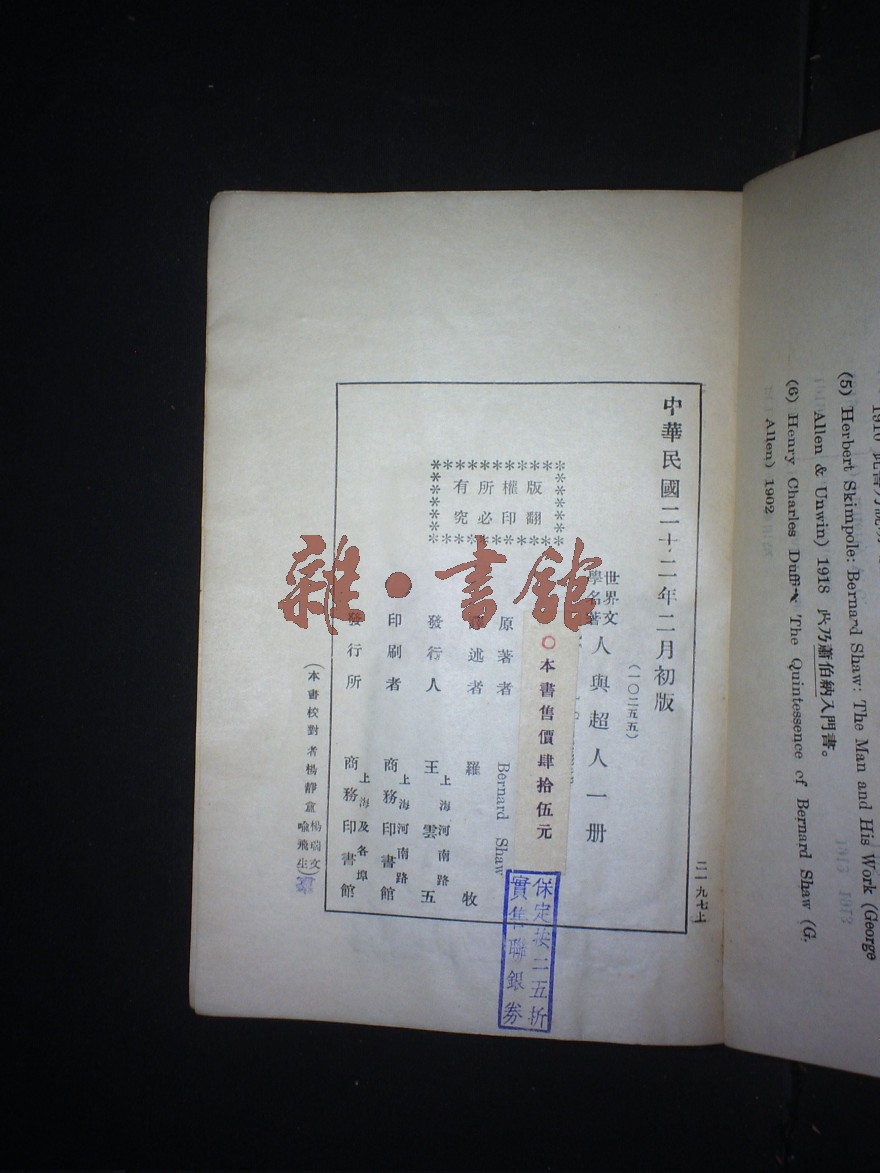 中華民國二十二年二月初版
(一〇二五五)
世界文
學名著
人與超人一册
〇本書售價肆拾伍元
原著者 Bernard Shaw
述者 羅牧
發行人 王雲五
上海河南路
印刷者 商務印書館
上海河南路
發行所 商務印書館
上海及各埠
版權所有
翻印必究
(本書校對者楊靜盦
楊瑞文
喻飛生)
二一九七上
保定按二五折
實售聯銀券
雜•書館
(5) Herbert Skimpole: Bernard Shaw: The Man and His Work (George
Allen & Unwin) 1918 此乃蕭伯納入門書。
(6) Henry Charles Duffin The Quintessence of Bernard Shaw (G.
Allen) 1902